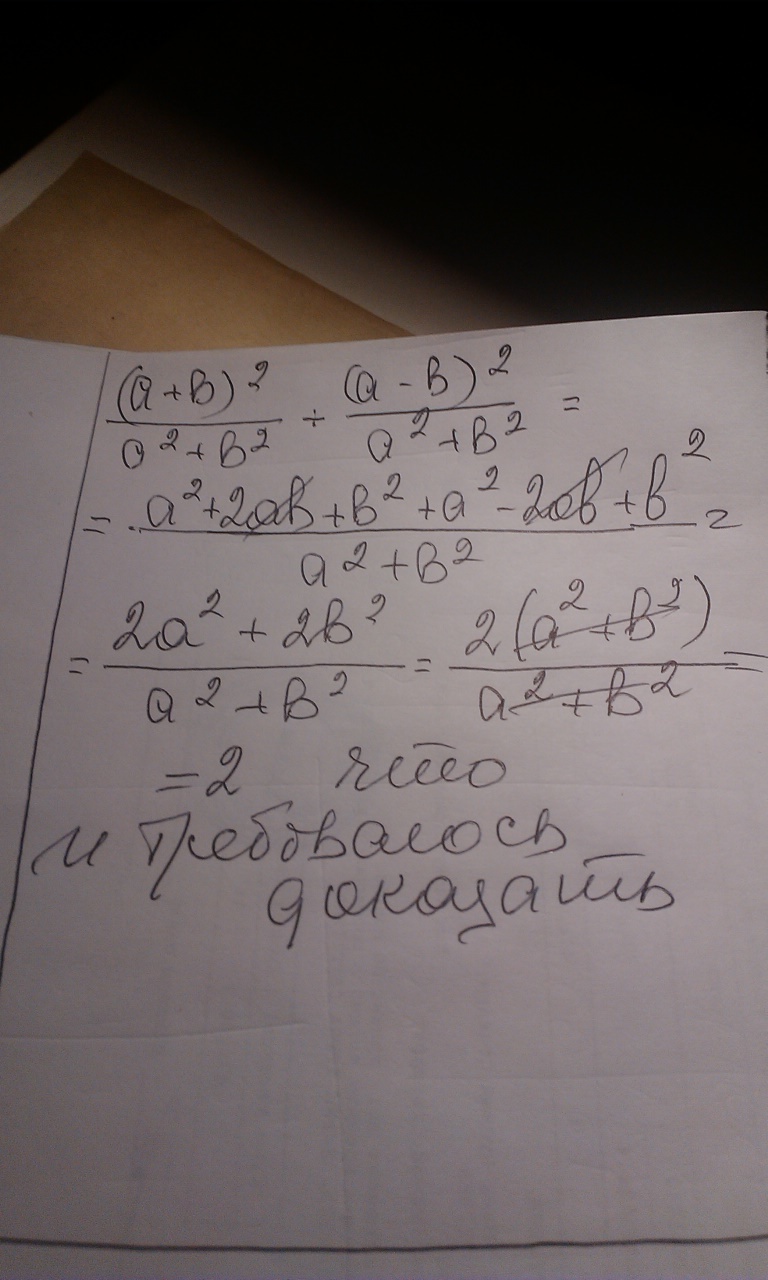 (a+b)²/(a²+b²) + (a-b)²/(a²+b²) =
= (a²+2ab+b²+a²-2ab+b²)/(a²+b²) =
= (2a²+2b²)/(a²+b²) = 2(a²+b²)/(a²+b²) =
=2 что
и требовалось
доказать